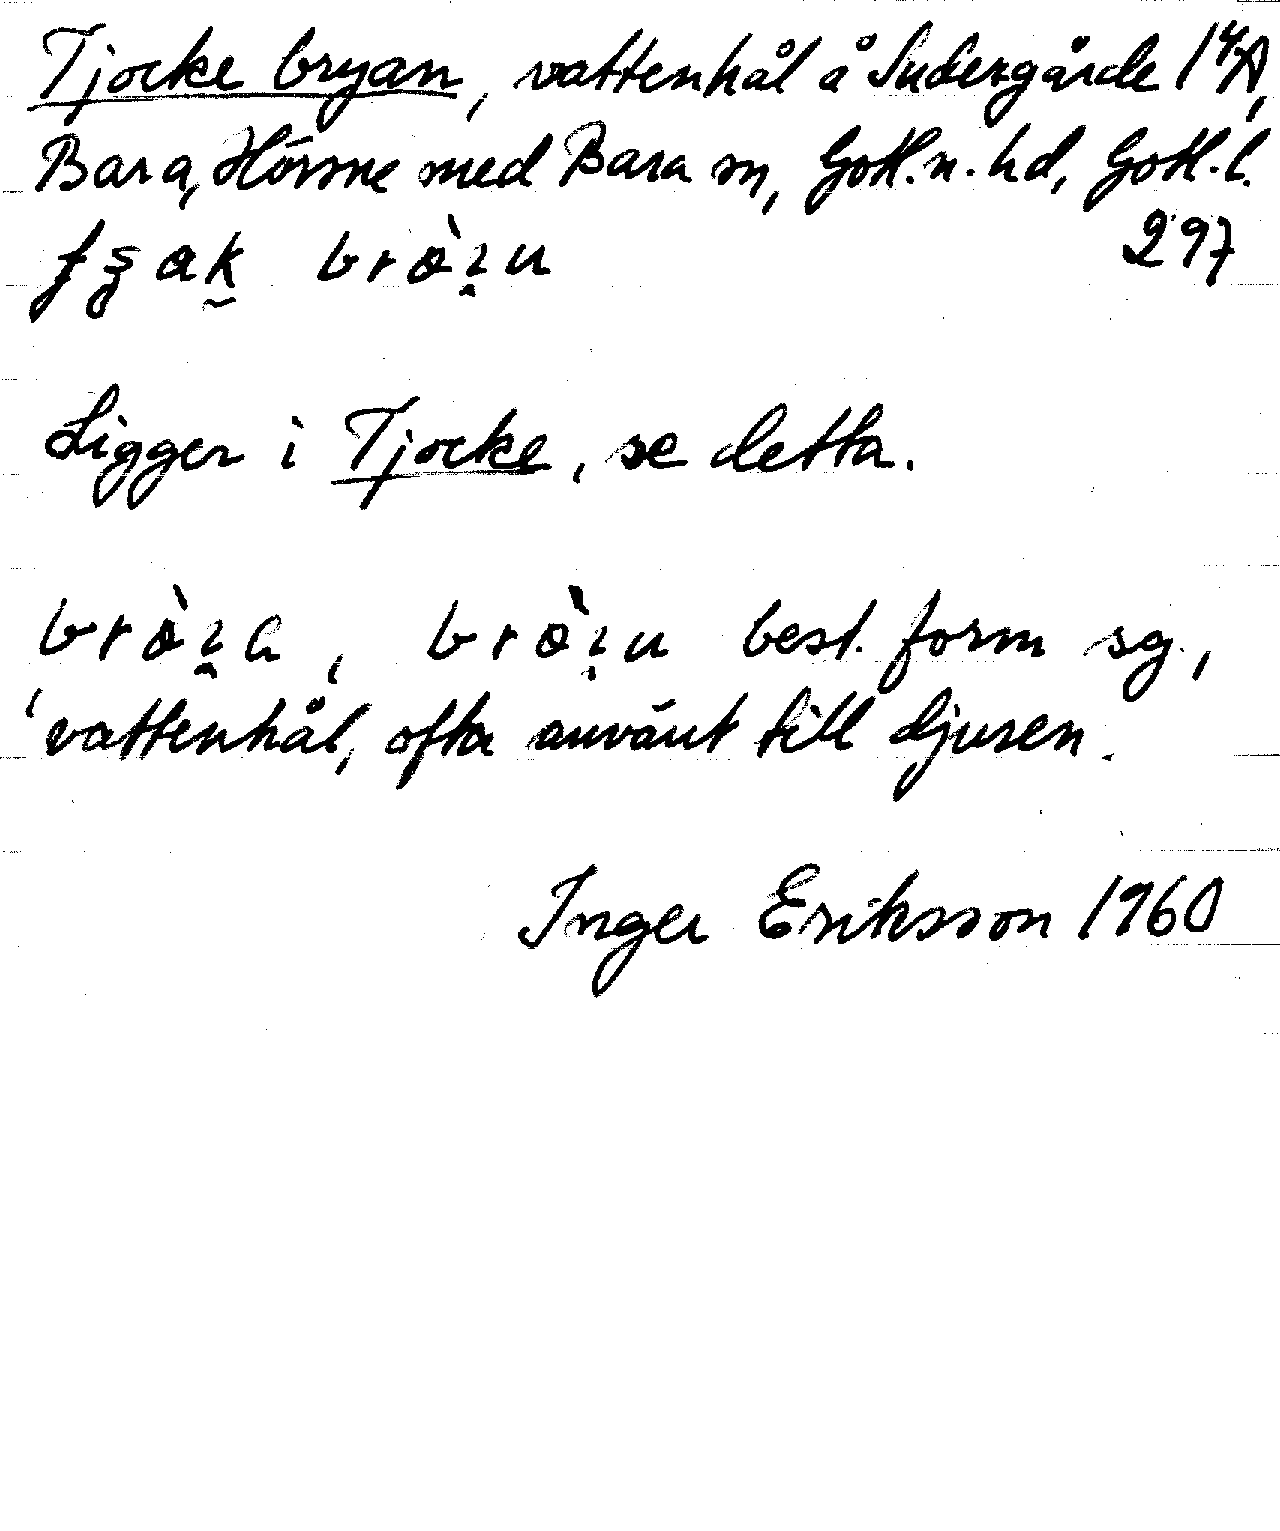 Tjocke bryan, vattenhål å Sudergårde 1⁴A,
Bara, Hörsne med Bara sn, Gotl.n.hd, Gotl.l.
297
Ligger i Tjocke, se detta.
best. form sg.,
'vattenhål, ofta använt till djuren.
Inger Eriksson 1960